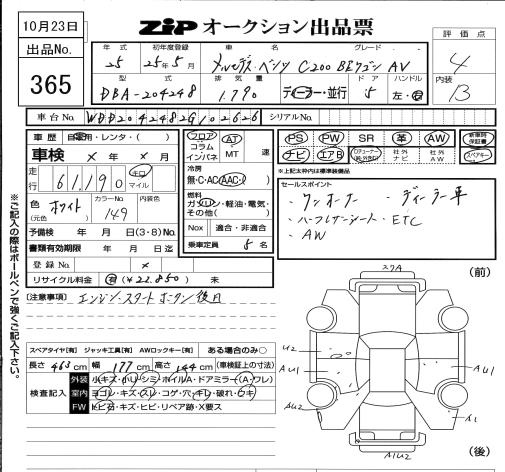 10月23日
ZIP オークション出品票
出品No.
365
評価点
4
内装
B
年式 初年度登録 車名 グレード
25 25年5月 メルセデス・ベンツ C200 BEワゴン AV
型式 排気量 ドア ハンドル
DBA-204248 1,790 ディーラー・並行 5 左・右
車台No. WDD2042482G102626 シリアルNo.
車歴 自家用・レンタ・( )
車検 × 年 × 月
走行 61,190 キロ マイル
色(元色) ホワイト カラーNo. 149 内装色
予備検 年 月 日(3・8)No.
書類有効期限 年 月 日迄
登録No. ×
リサイクル料金 有(¥22,850) 未
フロア コラム インパネ
AT MT 速
冷房
無・C・AC・AAC
燃料
ガソリン・軽油・電気・その他( )
Nox 適合・非適合
乗車定員 5 名
PS PW SR 革 AW 新車時保証書
ナビ エアB 社外ナビ 社外AW スペアキー
※上記太枠内は標準装備品
セールスポイント
・ワンオーナー ・ディーラー車
・ハーフレザーシート・ETC
・AW
【注意事項】エンジンスタートボタン後日
スペアタイヤ[有] ジャッキ工具[有] AWロックキー[有] ある場合のみ○
長さ 463cm 幅 177cm 高さ 144cm (車検証上の寸法)
検査記入
外装 小キズ・小凹・シミ・ホイルA・ドアミラー(A・ワレ)
室内 ヨゴレ・キズ・スレ・コゲ・穴・キレ・破れ・ウキ
FW トビ石・キズ・ヒビ・リペア跡・X要ス
※ご記入の際はボールペンで強くご記入下さい。
(前)
スクA
U2
AU1
AU1
AU2
A1
A1U2
(後)